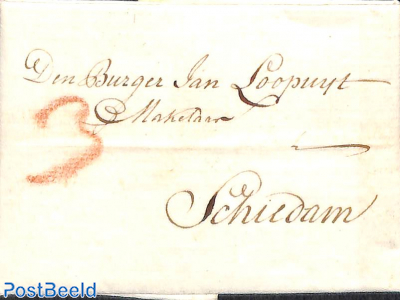 Den Burger Jan Loopuyt
Makelaar
3
Schiedam
PostBeeld